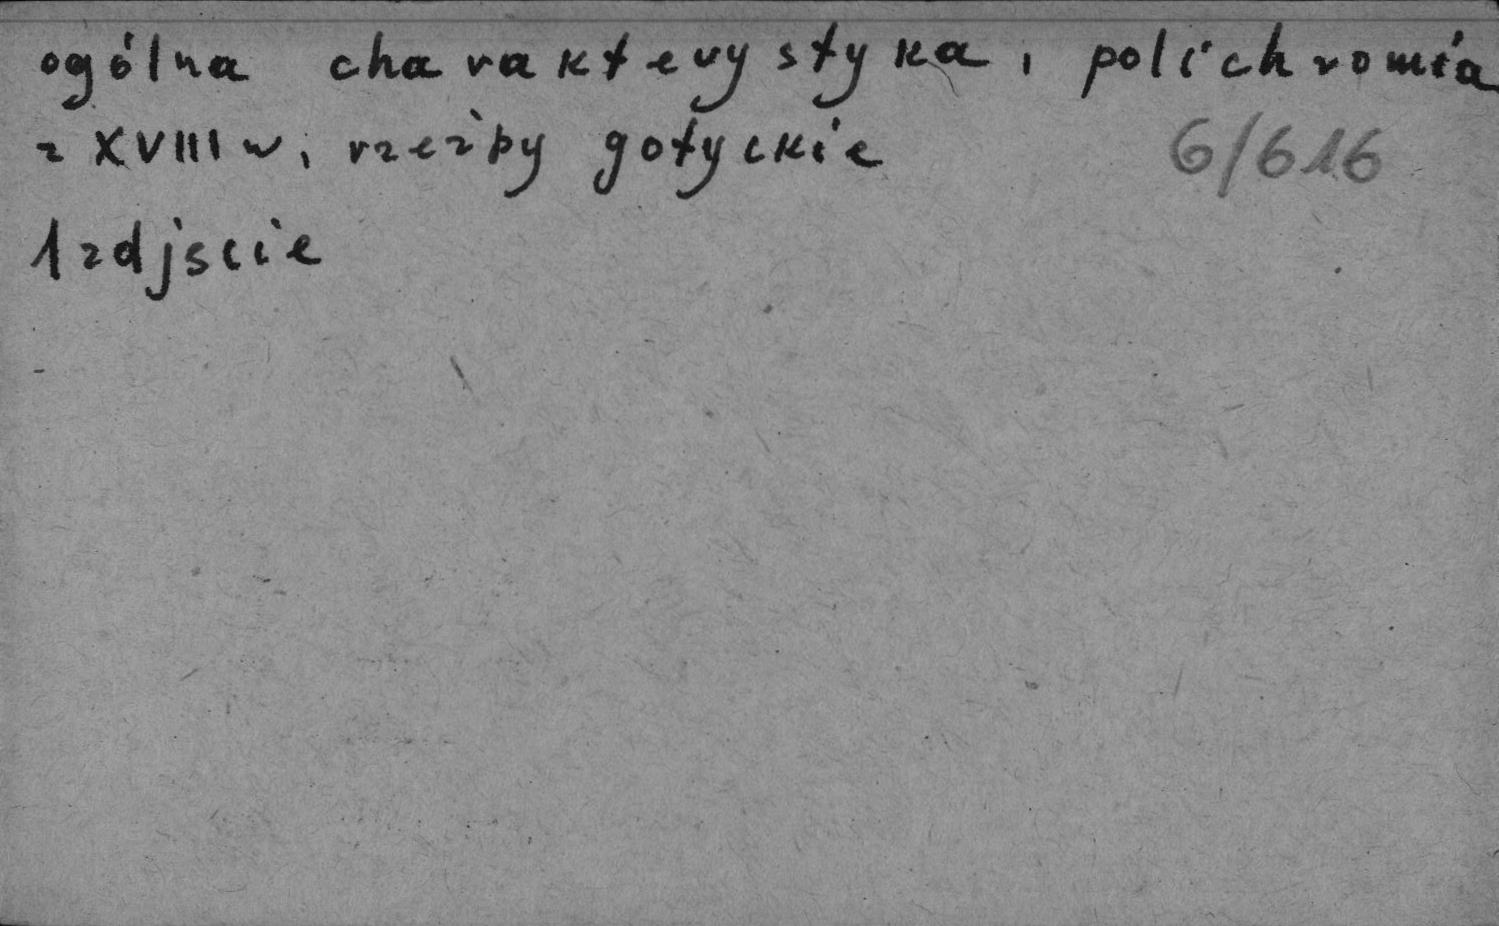 ogólna charakterystyka, polichromia
z XVIII w, rzeźby gotyckie
6/616
1 zdjscie